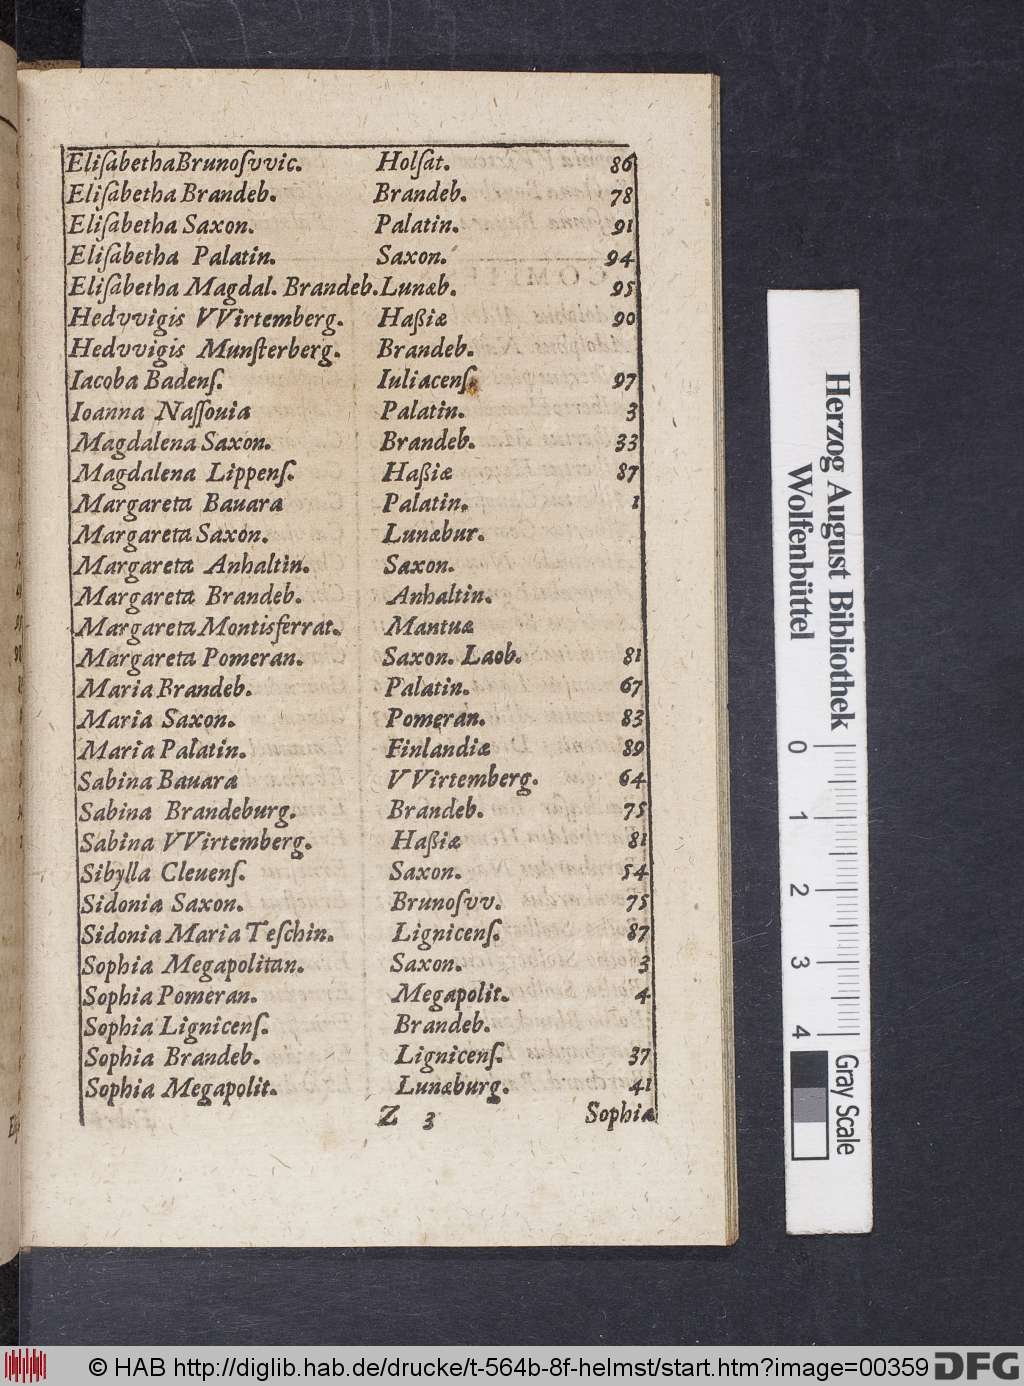 EliſabethaBrunoſvvic. Holſat. 86
Eliſabetha Brandeb. Brandeb. 78
Eliſabetha Saxon. Palatin. 91
Eliſabetha Palatin. Saxon. 94
Eliſabetha Magdal. Brandeb. Lunæb. 95
Hedvvigis VVirtemberg. Haßiæ 90
Hedvvigis Munſterberg. Brandeb.
Iacoba Badenſ. Iuliacenſ. 97
Ioanna Naſſouia Palatin. 3
Magdalena Saxon. Brandeb. 33
Magdalena Lippenſ. Haßiæ 87
Margareta Bauara Palatin. 1
Margareta Saxon. Lunæbur.
Margareta Anhaltin. Saxon.
Margareta Brandeb. Anhaltin.
Margareta Montisferrat. Mantuæ
Margareta Pomeran. Saxon. Laob. 81
Maria Brandeb. Palatin. 67
Maria Saxon. Pomeran. 83
Maria Palatin. Finlandiæ 89
Sabina Bauara VVirtemberg. 64
Sabina Brandeburg. Brandeb. 75
Sabina VVirtemberg. Haßiæ 81
Sibylla Cleuenſ. Saxon. 54
Sidonia Saxon. Brunoſvv. 75
Sidonia Maria Teſchin. Lignicenſ. 87
Sophia Megapolitan. Saxon. 3
Sophia Pomeran. Megapolit. 4
Sophia Lignicenſ. Brandeb.
Sophia Brandeb. Lignicenſ. 37
Sophia Megapolit. Lunæburg. 41
Z 3 Sophia
Herzog August Bibliothek
Wolfenbüttel
0 1 2 3 4
Gray Scale
© HAB http://diglib.hab.de/drucke/t-564b-8f-helmst/start.htm?image=00359 DFG